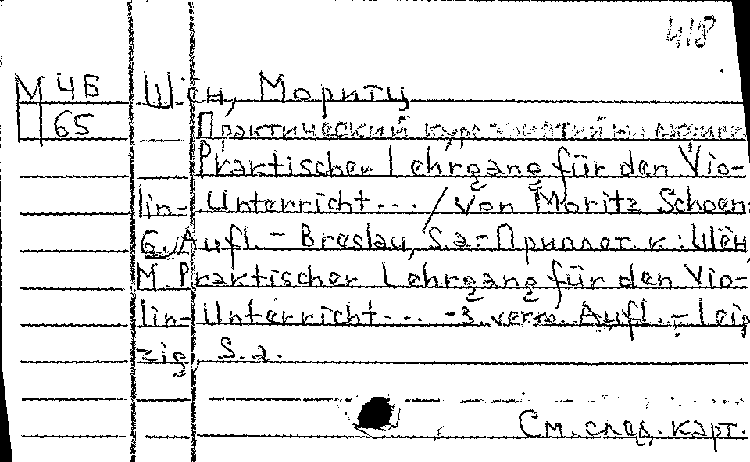 418
М 4Б Шён, Моритц
Ш 65 Практический курс занятий на
Praktischer Lehrgang für den Vio-
lin-Unterricht... / von Moritz Schoen.-
6. Aufl. - Breslau, S.a. - Приплет. к: Шён,
М. Praktischer Lehrgang für den Vio-
lin-Unterricht... -3. verm. Aufl. - Leip-
zig, S.a.
См. след. карт.